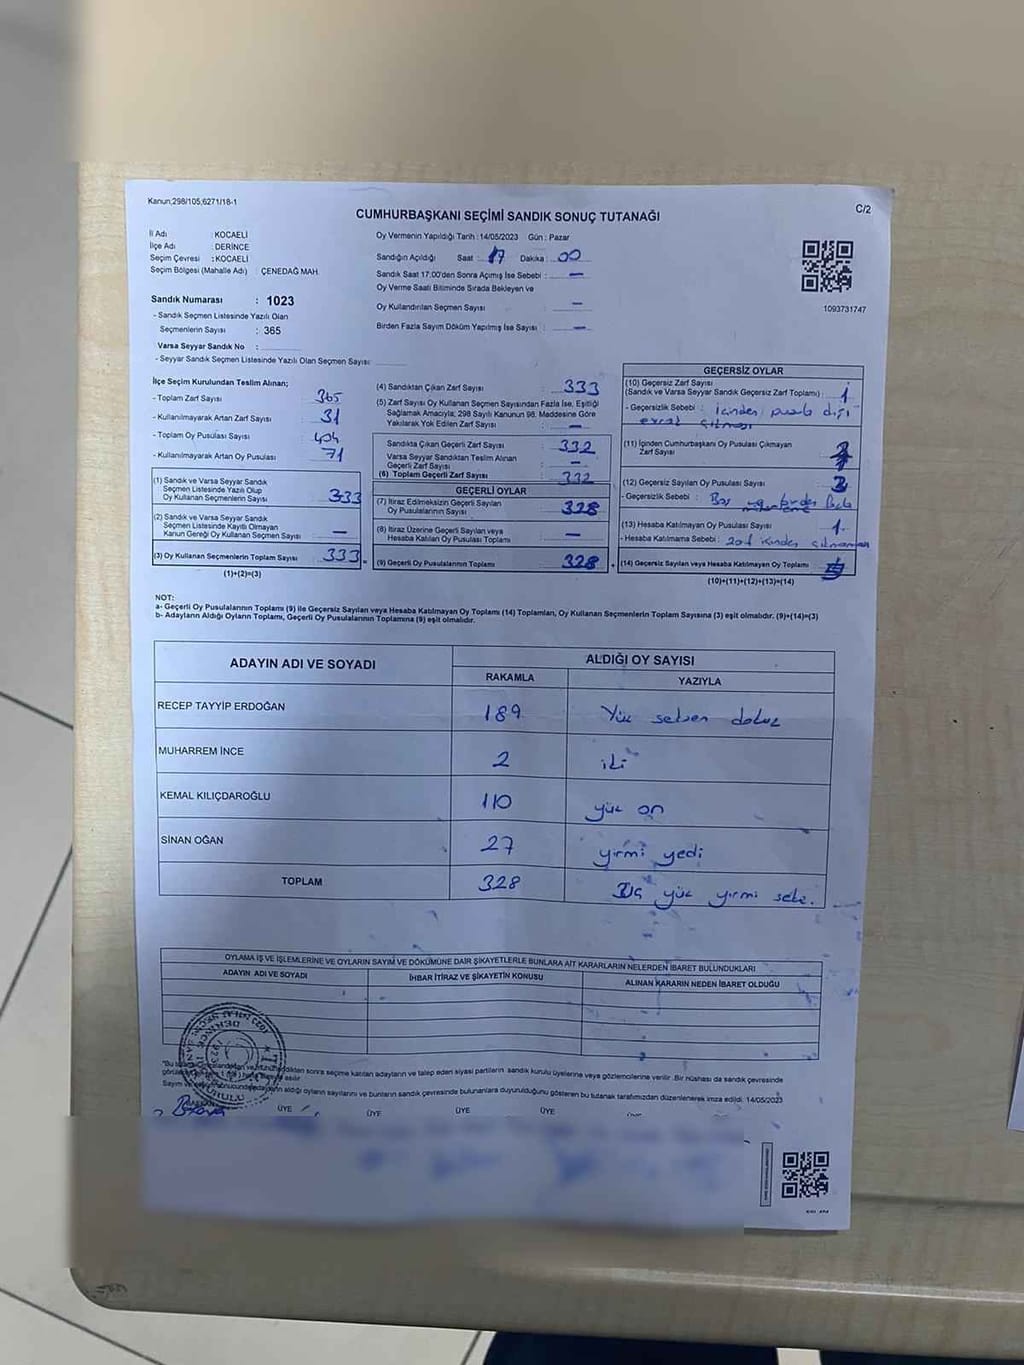 Kanun,298/105,6271/18-1
CUMHURBAŞKANI SEÇİMİ SANDIK SONUÇ TUTANAĞI
C/2
İl Adı : KOCAELİ
İlçe Adı : DERİNCE
Seçim Çevresi : KOCAELİ
Seçim Bölgesi (Mahalle Adı) : ÇENEDAĞ MAH.
Sandık Numarası : 1023
- Sandık Seçmen Listesinde Yazılı Olan
Seçmenlerin Sayısı : 365
Varsa Seyyar Sandık No :
- Seyyar Sandık Seçmen Listesinde Yazılı Olan Seçmen Sayısı:
Oy Vermenin Yapıldığı Tarih : 14/05/2023 Gün : Pazar
Sandığın Açıldığı Saat : 17 Dakika : 00
Sandık Saat 17:00'den Sonra Açımış İse Sebebi : —
Oy Verme Saati Bitiminde Sırada Bekleyen ve
Oy Kullandırılan Seçmen Sayısı : —
Birden Fazla Sayım Döküm Yapılmış İse Sayısı : —
1093731747
İlçe Seçim Kurulundan Teslim Alınan;
- Toplam Zarf Sayısı : 365
- Kullanılmayarak Artan Zarf Sayısı : 31
- Toplam Oy Pusulası Sayısı : 404
- Kullanılmayarak Artan Oy Pusulası : 71
(1) Sandık ve Varsa Seyyar Sandık
Seçmen Listesinde Yazılı Olup
Oy Kullanan Seçmenlerin Sayısı : 333
(2) Sandık ve Varsa Seyyar Sandık
Seçmen Listesinde Kayıtlı Olmayan
Kanun Gereği Oy Kullanan Seçmen Sayısı : —
(3) Oy Kullanan Seçmenlerin Toplam Sayısı : 333
(1)+(2)=(3)
(4) Sandıktan Çıkan Zarf Sayısı : 333
(5) Zarf Sayısı Oy Kullanan Seçmen Sayısından Fazla İse, Eşitliği
Sağlamak Amacıyla; 298 Sayılı Kanunun 98. Maddesine Göre
Yakılarak Yok Edilen Zarf Sayısı : —
Sandıkta Çıkan Geçerli Zarf Sayısı : 332
Varsa Seyyar Sandıktan Teslim Alınan
Geçerli Zarf Sayısı : —
(6) Toplam Geçerli Zarf Sayısı : 332
GEÇERLİ OYLAR
(7) İtiraz Edilmeksizin Geçerli Sayılan
Oy Pusulalarının Sayısı : 328
(8) İtiraz Üzerine Geçerli Sayılan veya
Hesaba Katılan Oy Pusulası Toplamı : —
(9) Geçerli Oy Pusulalarının Toplamı : 328
GEÇERSİZ OYLAR
(10) Geçersiz Zarf Sayısı
(Sandık ve Varsa Seyyar Sandık Geçersiz Zarf Toplamı) : 1
- Geçersizlik Sebebi : içinden pusula dışı
evrak çıkması
(11) İçinden Cumhurbaşkanı Oy Pusulası Çıkmayan
Zarf Sayısı :
(12) Geçersiz Sayılan Oy Pusulası Sayısı :
- Geçersizlik Sebebi :
(13) Hesaba Katılmayan Oy Pusulası Sayısı : 1
- Hesaba Katılmama Sebebi : zarf içinden çıkmaması
(14) Geçersiz Sayılan veya Hesaba Katılmayan Oy Toplamı :
(10)+(11)+(12)+(13)=(14)
NOT:
a- Geçerli Oy Pusulalarının Toplamı (9) ile Geçersiz Sayılan veya Hesaba Katılmayan Oy Toplamı (14) Toplamları, Oy Kullanan Seçmenlerin Toplam Sayısına (3) eşit olmalıdır. (9)+(14)=(3)
b- Adayların Aldığı Oyların Toplamı, Geçerli Oy Pusulalarının Toplamına (9) eşit olmalıdır.
ADAYIN ADI VE SOYADI
ALDIĞI OY SAYISI
RAKAMLA YAZIYLA
RECEP TAYYİP ERDOĞAN 189 Yüz seksen dokuz
MUHARREM İNCE 2 iki
KEMAL KILIÇDAROĞLU 110 yüz on
SİNAN OĞAN 27 yirmi yedi
TOPLAM 328 Üç yüz yirmi sekiz.
OYLAMA İŞ VE İŞLEMLERİNE VE OYLARIN SAYIM VE DÖKÜMÜNE DAİR ŞİKAYETLERLE BUNLARA AİT KARARLARIN NELERDEN İBARET BULUNDUKLARI
ADAYIN ADI VE SOYADI İHBAR İTİRAZ VE ŞİKAYETİN KONUSU ALINAN KARARIN NEDEN İBARET OLDUĞU
sonra seçime katılan adayların ve talep eden siyasi partilerin sandık kurulu üyelerine veya gözlemcilerine verilir. Bir nüshası da sandık çevresinde
aldığı oyların sayılarını ve bunların sandık çevresinde bulunanlara duyurulduğunu gösteren bu tutanak tarafımızdan düzenlenerek imza edildi. 14/05/2023
ÜYE ÜYE ÜYE ÜYE